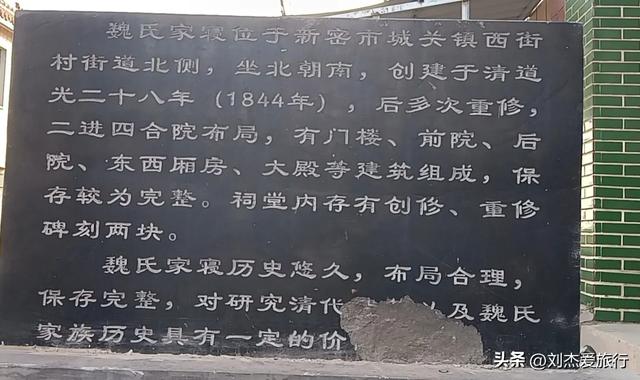 魏氏家寝位于新密市城关镇西街
村街道北侧，坐北朝南，创建于清道
光二十八年（1844年），后多次重修，
二进四合院布局，有门楼、前院、后
院、东西厢房、大殿等建筑组成，保
存较为完整。祠堂内存有创修、重修
碑刻两块。
魏氏家寝历史悠久，布局合理，
保存完整，对研究清代 以及魏氏
家族历史具有一定的价
头条 @刘杰爱旅行